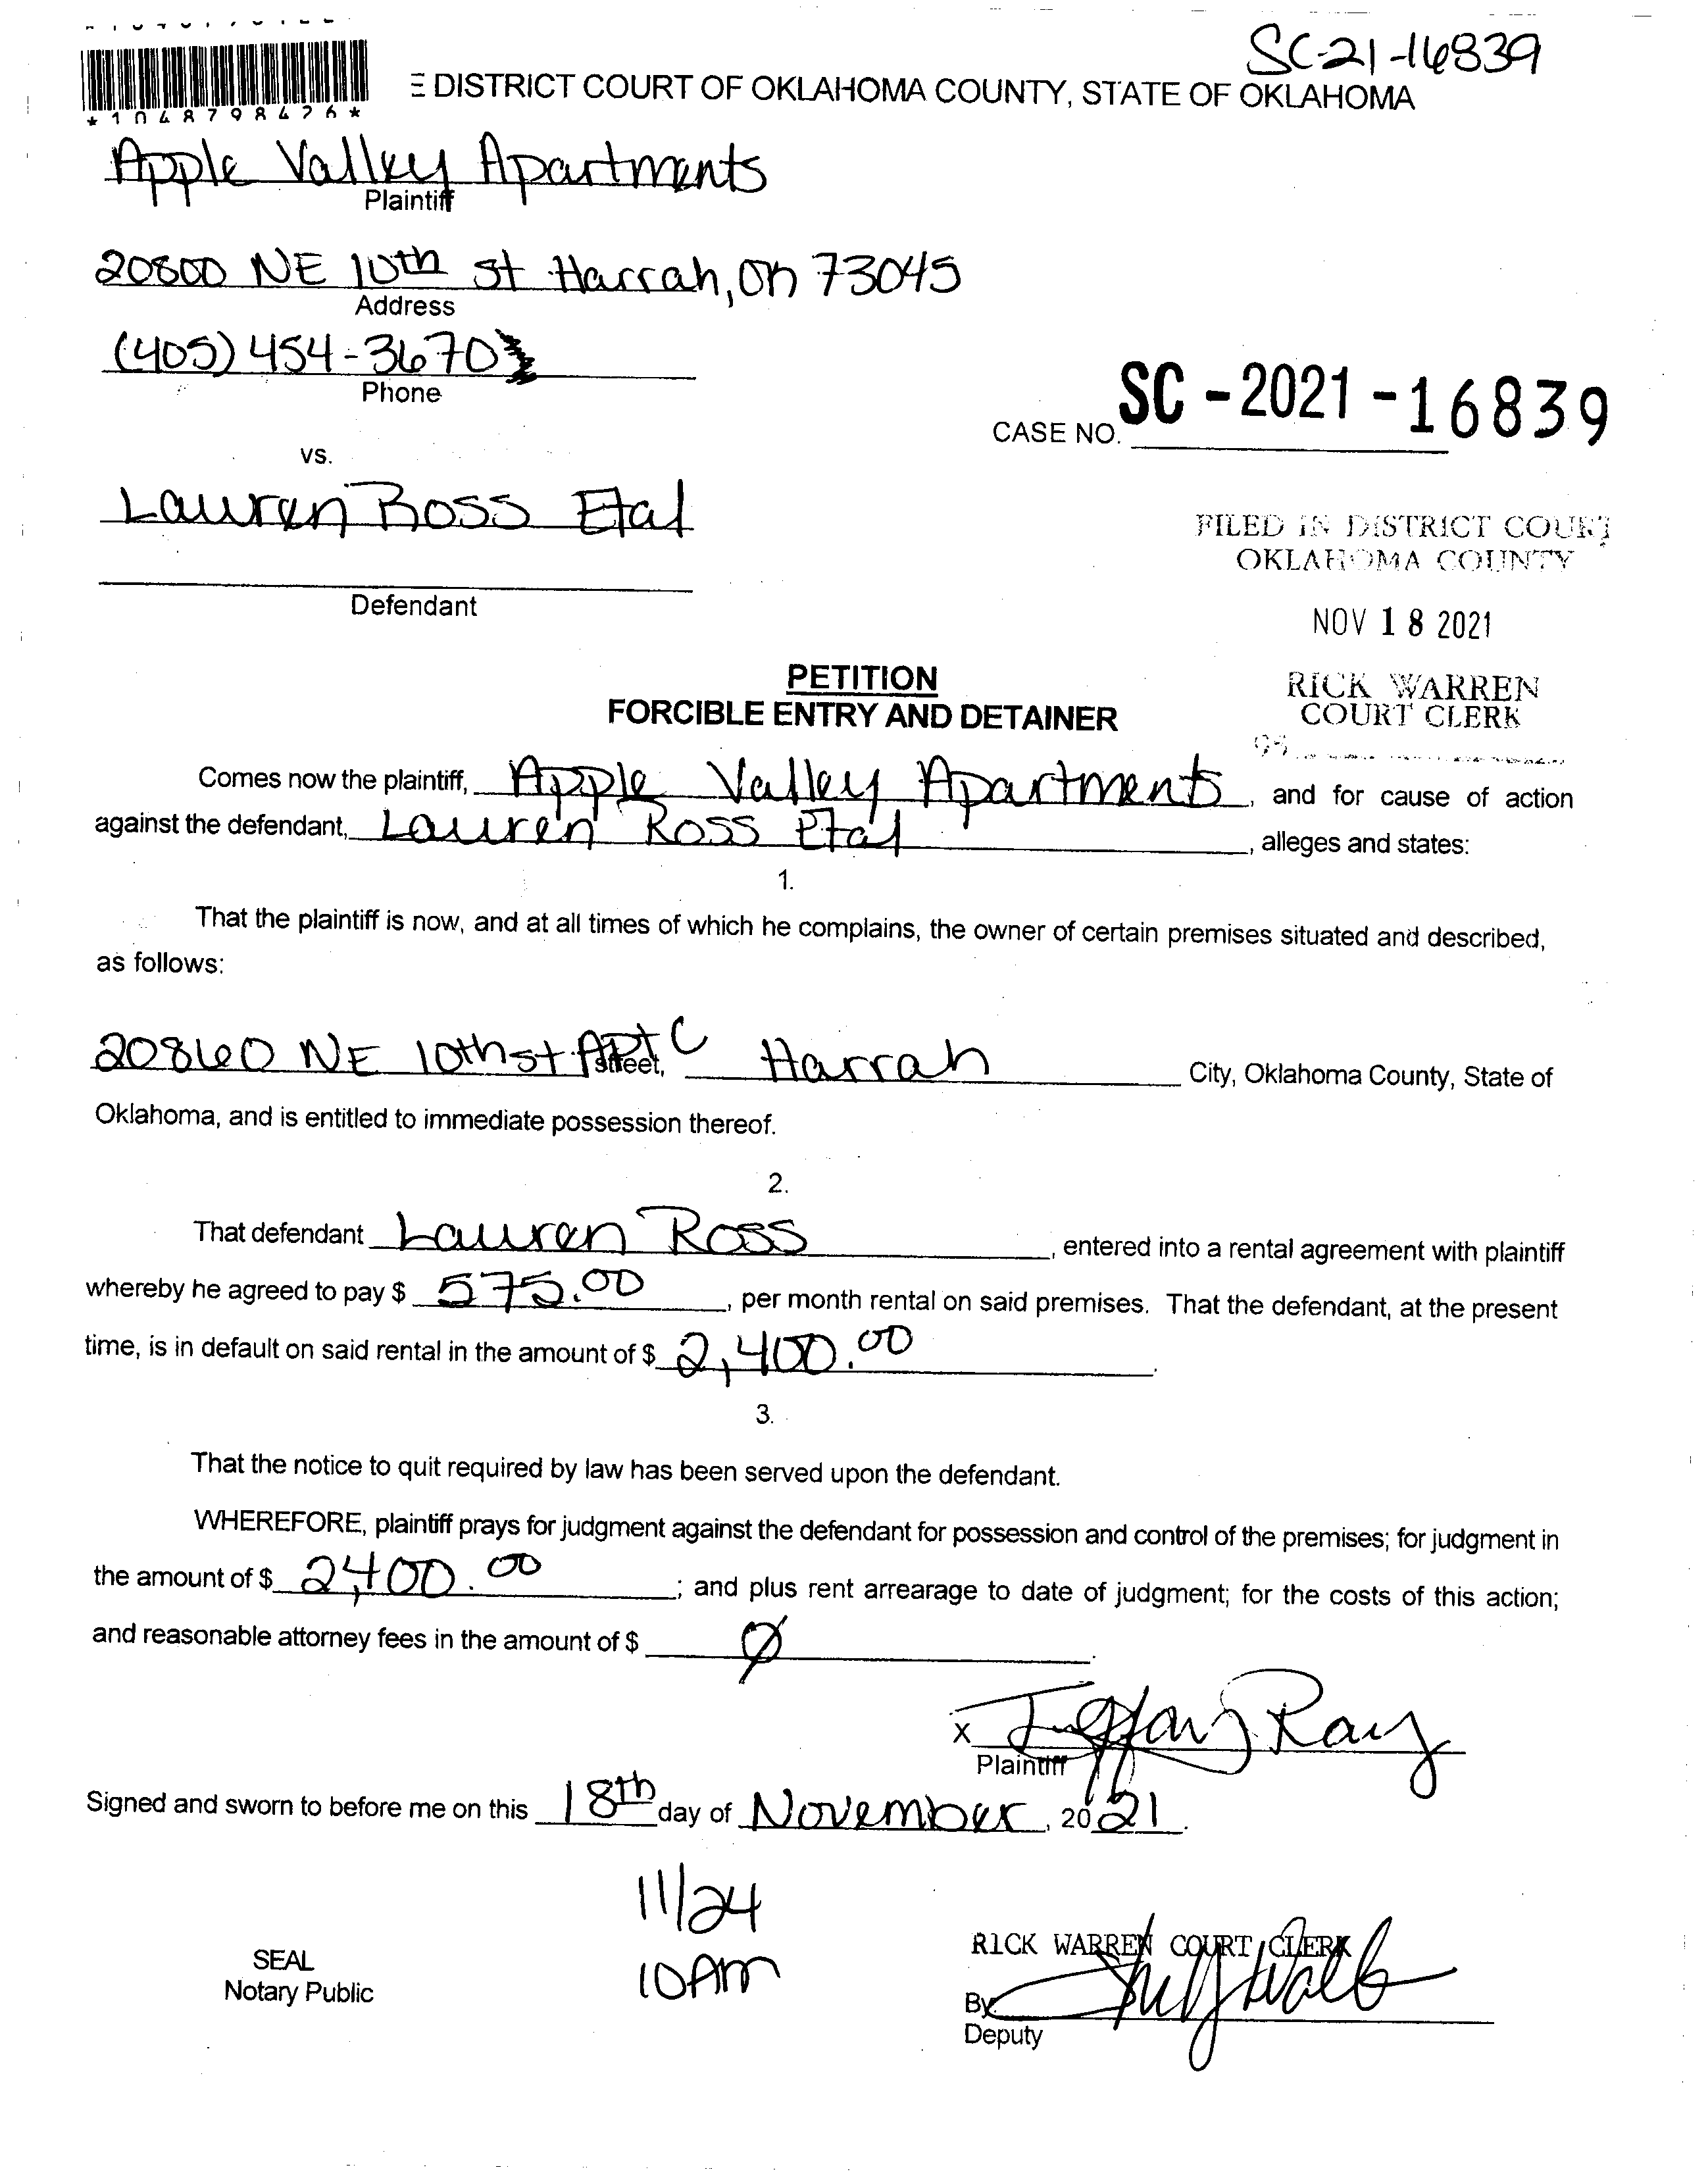 SC-21-16839
E DISTRICT COURT OF OKLAHOMA COUNTY, STATE OF OKLAHOMA
*1048798426*
Apple Valley Apartments
Plaintiff
20800 NE 10th st Harrah, OK 73045
Address
(405) 454-3670
Phone
CASE NO. SC-2021-16839
vs.
Lauren Ross Etal
Defendant
FILED IN DISTRICT COURT
OKLAHOMA COUNTY
NOV 18 2021
RICK WARREN
COURT CLERK
PETITION
FORCIBLE ENTRY AND DETAINER
Comes now the plaintiff, Apple Valley Apartments, and for cause of action
against the defendant, Lauren Ross Etal, alleges and states:
1.
That the plaintiff is now, and at all times of which he complains, the owner of certain premises situated and described,
as follows:
20860 NE 10th st APT C Street, Harrah City, Oklahoma County, State of
Oklahoma, and is entitled to immediate possession thereof.
2.
That defendant Lauren Ross, entered into a rental agreement with plaintiff
whereby he agreed to pay $ 575.00, per month rental on said premises. That the defendant, at the present
time, is in default on said rental in the amount of $ 2,400.00.
3.
That the notice to quit required by law has been served upon the defendant.
WHEREFORE, plaintiff prays for judgment against the defendant for possession and control of the premises; for judgment in
the amount of $ 2,400.00; and plus rent arrearage to date of judgment; for the costs of this action;
and reasonable attorney fees in the amount of $ Ø.
X Tiffany Ray
Plaintiff
Signed and sworn to before me on this 18th day of November, 2021.
11/24
10AM
SEAL
Notary Public
RICK WARREN COURT CLERK
By
Deputy